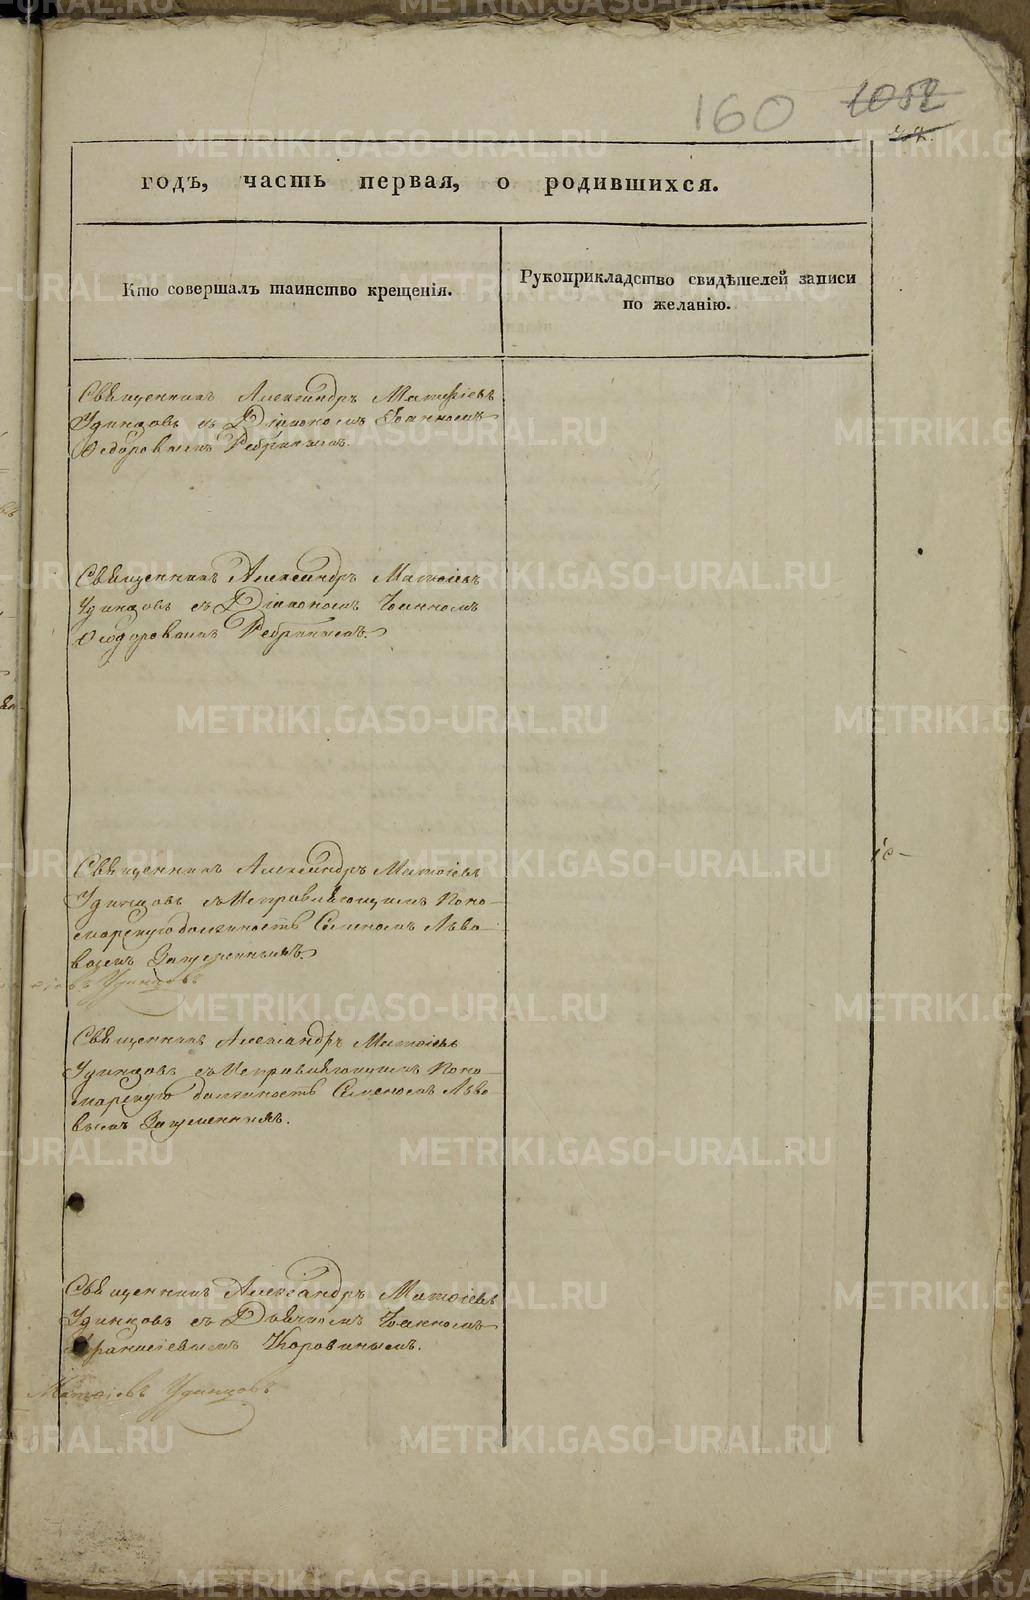 160 1052
годъ, часть первая, о родившихся.
Кто совершалъ таинство крещенія.
Рукоприкладство свидѣтелей записи
по желанію.
Священникъ Александръ Матѳіевъ
Удинцовъ съ Діакономъ Іоанномъ
Ѳедоровымъ Ребринымъ.
Священникъ Александръ Матѳіевъ
Удинцовъ съ Діакономъ Іоанномъ
Ѳеодоровымъ Ребринымъ.
Священникъ Александръ Матѳіевъ
Удинцовъ съ Исправляющимъ Поно-
марскую должность Семеномъ Льво-
вымъ
Удинцовъ
Священникъ Александръ Матѳіевъ
Удинцовъ съ Исправляющимъ Поно-
марскую должность Семеномъ Льво-
вымъ
Священникъ Александръ Матѳіевъ
Удинцовъ съ Дьячкомъ Іоанномъ
Коровинымъ.
Матѳіевъ Удинцовъ
METRIKI.GASO-URAL.RU